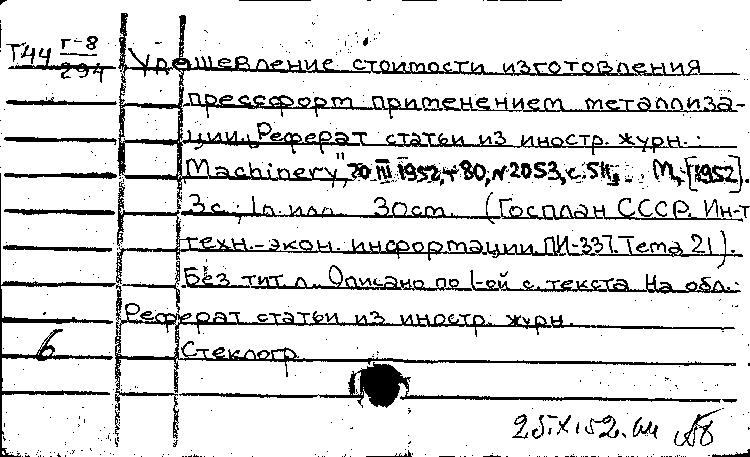 Т44 Г-8
294
Удешевление стоимости изготовления
прессформ применением металлиза-
ции. Реферат статьи из иностр. журн.:
"Machinery", 20 III 1952, т 80, N 2053, с. 511,.. М., [1952].
3 с.; 1 л. илл. 30 cm. (Госплан СССР. Ин-т
техн.-экон. информации ПИ-337. Тема 21).
Без тит. л. Описано по 1-ой с. текста На обл.:
Реферат статьи из иностр. журн.
6 Стеклогр.
25.IX.52.